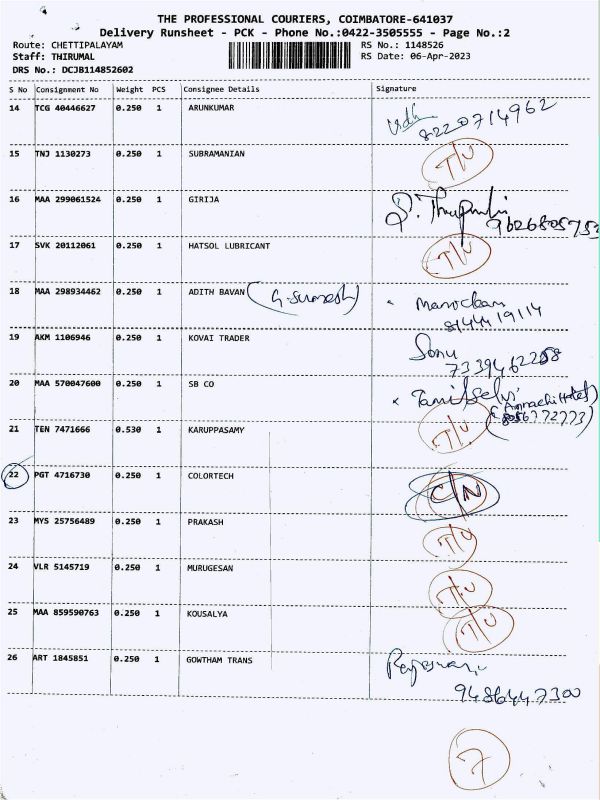 THE PROFESSIONAL COURIERS, COIMBATORE-641037
Delivery Runsheet - PCK - Phone No.:0422-3505555 - Page No.:2
Route: CHETTIPALAYAM RS No.: 1148526
Staff: THIRUMAL RS Date: 06-Apr-2023
DRS No.: DCJB114852602
S No Consignment No Weight PCS Consignee Details Signature
14 TCG 40446627 0.250 1 ARUNKUMAR
8220714962
15 TNJ 1130273 0.250 1 SUBRAMANIAN T/U
16 MAA 299061524 0.250 1 GIRIJA
9626805752
17 SVK 20112061 0.250 1 HATSOL LUBRICANT T/U
18 MAA 298934462 0.250 1 ADITH BAVAN (G. Suresh)
8144419114
19 AKM 1106946 0.250 1 KOVAI TRADER Sonu
7339462258
20 MAA 570047600 0.250 1 SB CO Tamilselvi
21 TEN 7471666 0.530 1 KARUPPASAMY T/U
22 PGT 4716730 0.250 1 COLORTECH C/N
23 MYS 25756489 0.250 1 PRAKASH T/U
24 VLR 5145719 0.250 1 MURUGESAN T/U
25 MAA 859590763 0.250 1 KOUSALYA T/U
26 ART 1845851 0.250 1 GOWTHAM TRANS
9486447300
7